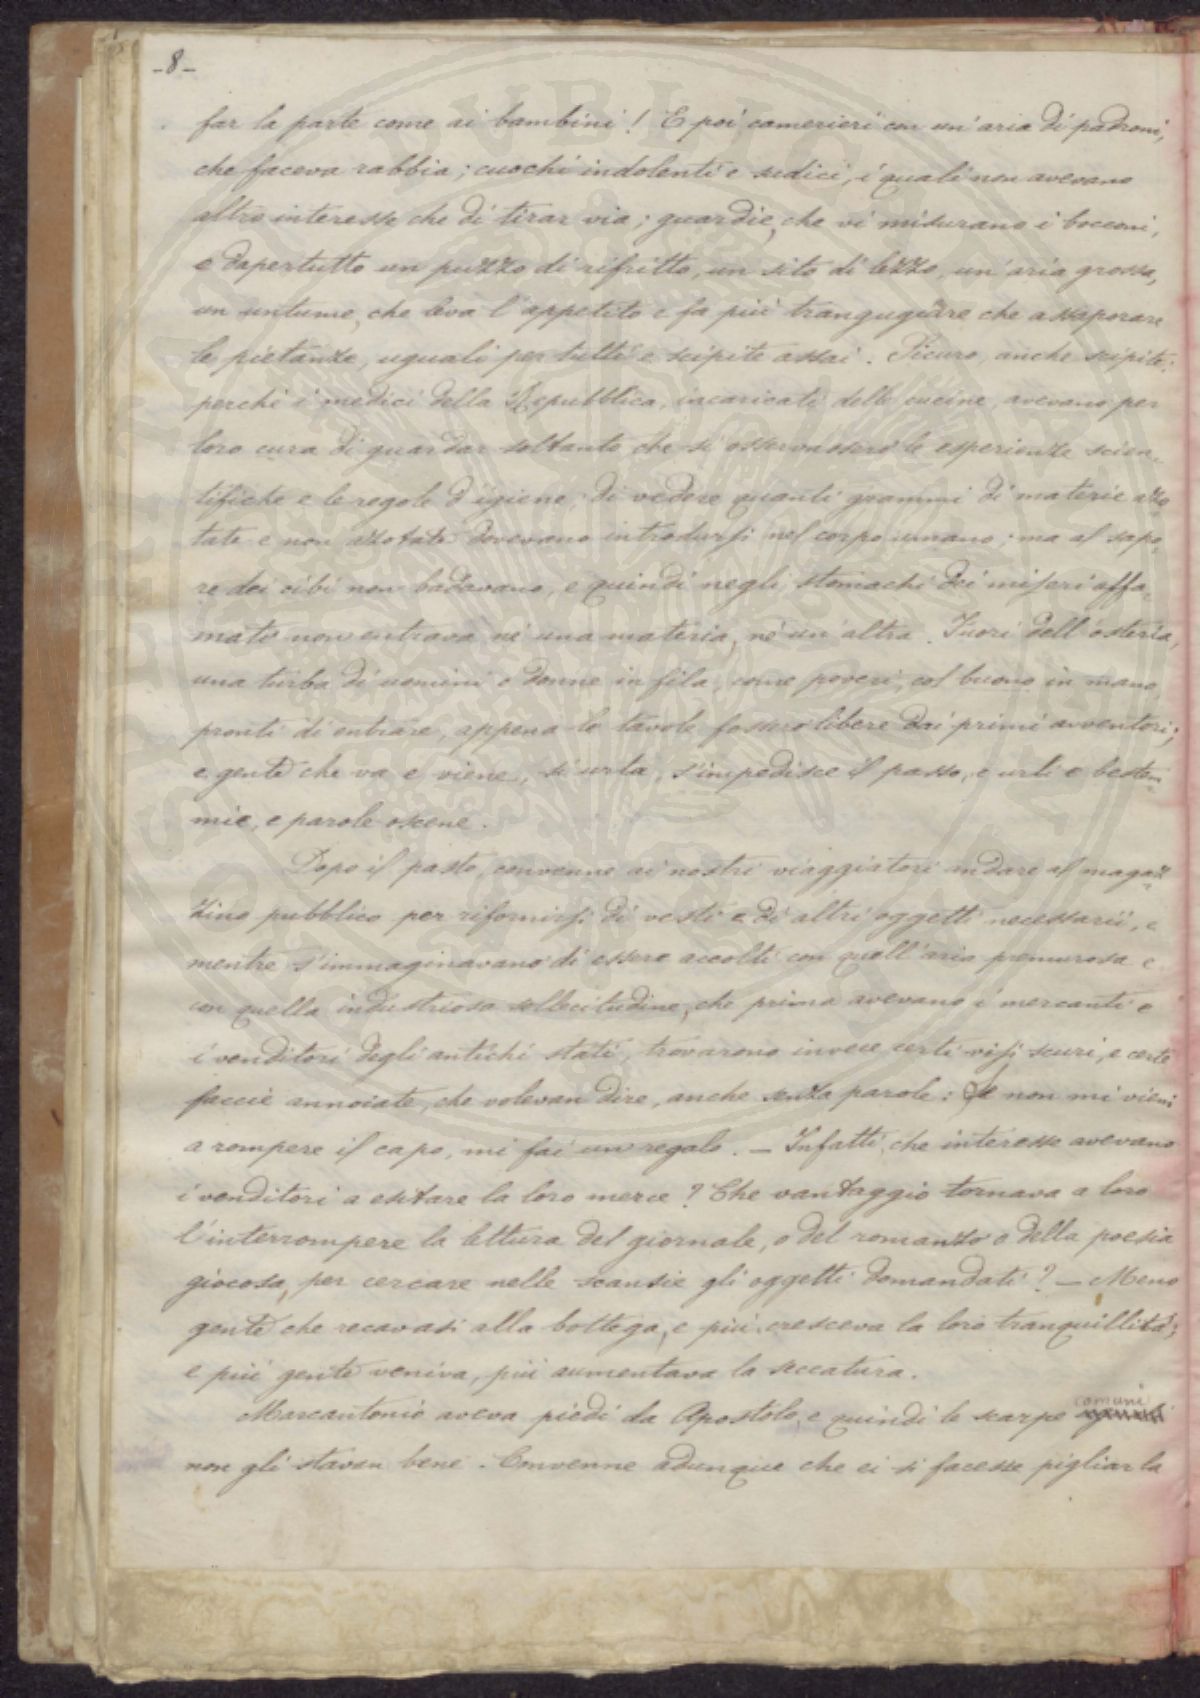 -8-
far la parte come ai bambini! E poi camerieri con un'aria di padroni,
che faceva rabbia; cuochi indolenti e sudici, i quali non avevano
altro interesse che di tirar via; guardie, che vi misurano i bocconi,
e dapertutto un puzzo di rifritto, un sito di lezzo, un'aria grossa,
un untume, che leva l'appetito e fa più trangugiare che assaporare
le pietanze, uguali per tutti e scipite assai. Sicuro, anche scipite:
perchè i medici della Repubblica, incaricati delle cucine, avevano per
loro cura di guardar soltanto che si osservassero le esperienze scien-
tifiche e le regole d'igiene; di vedere quanti grammi di materie azo
tate e non azotate dovevano introdursi nel corpo umano; ma al sapo-
re dei cibi non badavano, e quindi negli stomachi dei miseri affa-
mati non entrava nè una materia, nè un'altra. Fuori dell'osteria,
una turba di uomini e donne in fila, come poveri, col buono in mano,
pronti di entrare, appena le tavole fossero libere dai primi avventori;
e gente che va e viene, si urta, s'impedisce il passo, e urli e bestem-
mie, e parole oscene.
Dopo il pasto, convenne ai nostri viaggiatori andare al magaz-
zino pubblico per rifornirsi di vesti e di altri oggetti necessarii, e
mentre s'immaginavano di essere accolti con quell'aria premurosa e
con quella industriosa sollecitudine, che prima avevano i mercanti e
i venditori degli antichi stati, trovarono invece certi visi scuri, e certe
faccie annoiate, che volevan dire, anche senza parole: Se non mi vieni
a rompere il capo, mi fai un regalo. — Infatti, che interesse avevano
i venditori a esitare la loro merce? Che vantaggio tornava a loro
l'interrompere la lettura del giornale, o del romanzo o della poesia
giocosa, per cercare nelle scansie gli oggetti domandati? — Meno
gente che recavasi alla bottega, e più cresceva la loro tranquillità;
e più gente veniva, più aumentava la seccatura.
Marcantonio aveva piedi da Apostolo, e quindi le scarpe comuni
non gli stavan bene. Convenne adunque che ei si facesse pigliar la